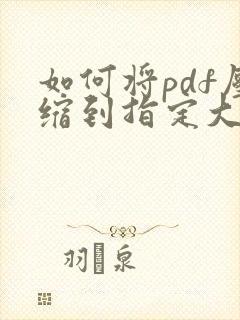 如何将pdf压
缩到指定大
羽泉